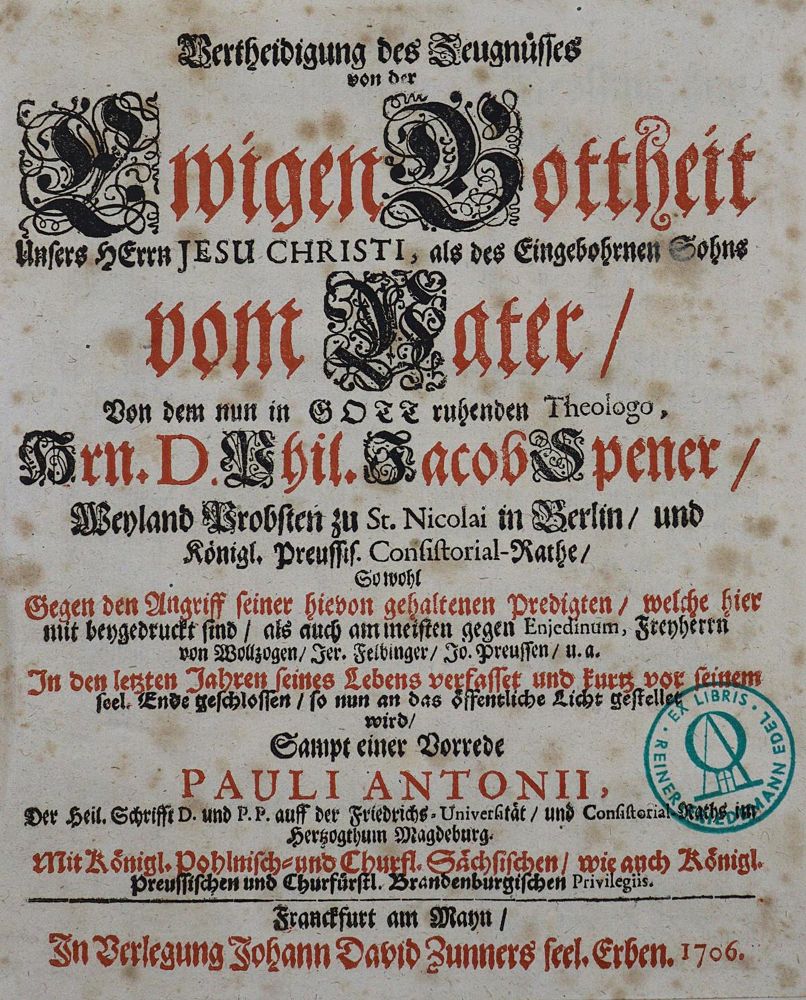 Vertheidigung des Zeugnüsses
von der
Ewigen Gottheit
Unsers HErrn JESU CHRISTI, als des Eingebohrnen Sohns
vom Vater /
Von dem nun in GOTT ruhenden Theologo,
Hrn. D. Phil. Jacob Spener /
Weyland Probsten zu St. Nicolai in Berlin / und
Königl. Preussis. Consistorial-Rathe /
So wohl
Gegen den Angriff seiner hievon gehaltenen Predigten / welche hier
mit beygedruckt sind / als auch am meisten gegen Enjedinum, Freyherrn
von Wollzogen / Jer. Felbinger / Jo. Preussen / u. a.
In den letzten Jahren seines Lebens verfasset und kurtz vor seinem
seel. Ende geschlossen / so nun an das öffentliche Licht gestellet
wird /
Sampt einer Vorrede
PAULI ANTONII,
Der Heil. Schrifft D. und P. P. auff der Friedrichs-Universität / und Consistorial-Raths im
Hertzogthum Magdeburg.
Mit Königl. Pohlnisch- und Churfl. Sächsischen / wie auch Königl.
Preussischen und Churfürstl. Brandenburgischen Privilegiis.
Franckfurt am Mayn /
In Verlegung Johann David Zunners seel. Erben. 1706.
EX LIBRIS · REINER FRIEDEMANN EDEL ·